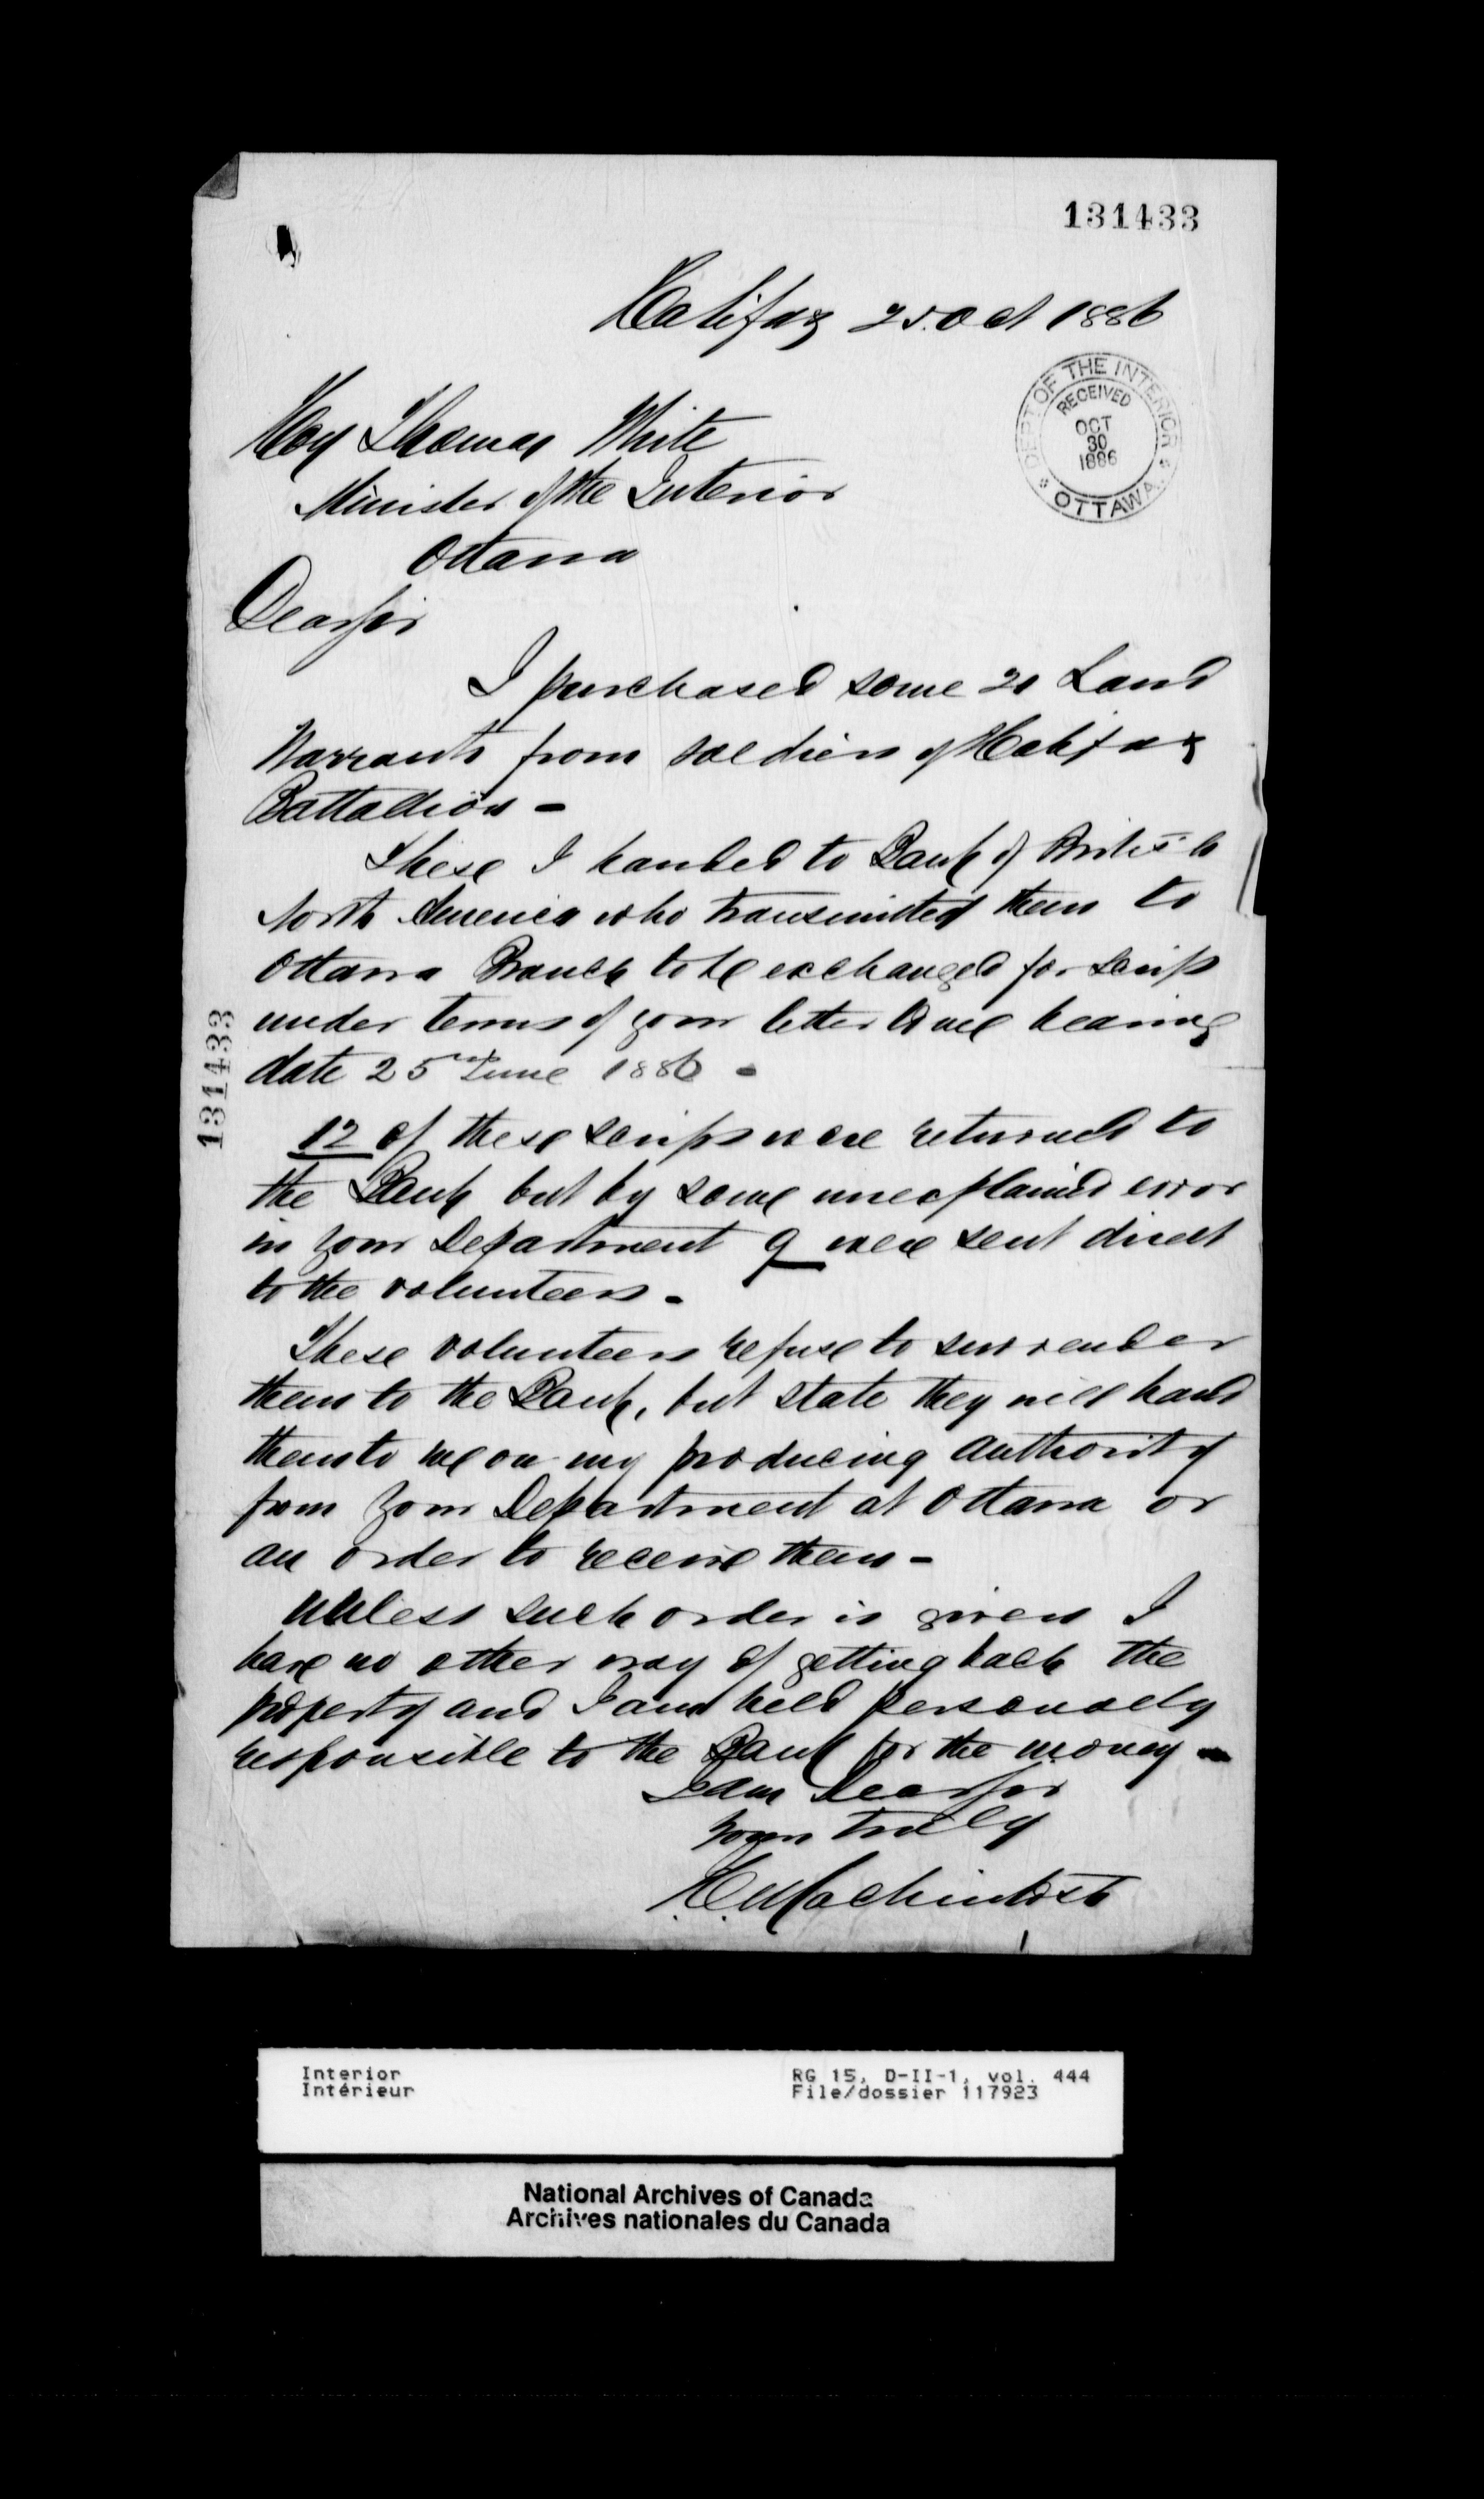 131433
Halifax 25 Oct 1886
Hon Thomas White
Minister of the Interior
Ottawa
DEPT OF THE INTERIOR
RECEIVED
OCT
30
1886
OTTAWA
Dear Sir
I purchased some 21 Land
Warrants from soldiers of Halifax
Battallion -
These I handed to Bank of British
North America who transmitted them to
Ottawa Branch to be exchanged for scrip
under terms of your letter to me bearing
date 25th June 1886 -
12 of these scrips were returned to
the Bank but by some unexplained error
in your Department 9 were sent direct
to the volunteers -
These volunteers refuse to surrender
them to the Bank, but state they will hand
them to me on my producing authority
from your Department at Ottawa or
an order to receive them -
Unless such order is given I
have no other way of getting back the
property and I am held personally
responsible to the Bank for the money -
I am Dear Sir
Yours truly
H. Mackintosh
131433
Interior
Intérieur
RG 15, D-II-1, vol. 444
File/dossier 117923
National Archives of Canada
Archives nationales du Canada